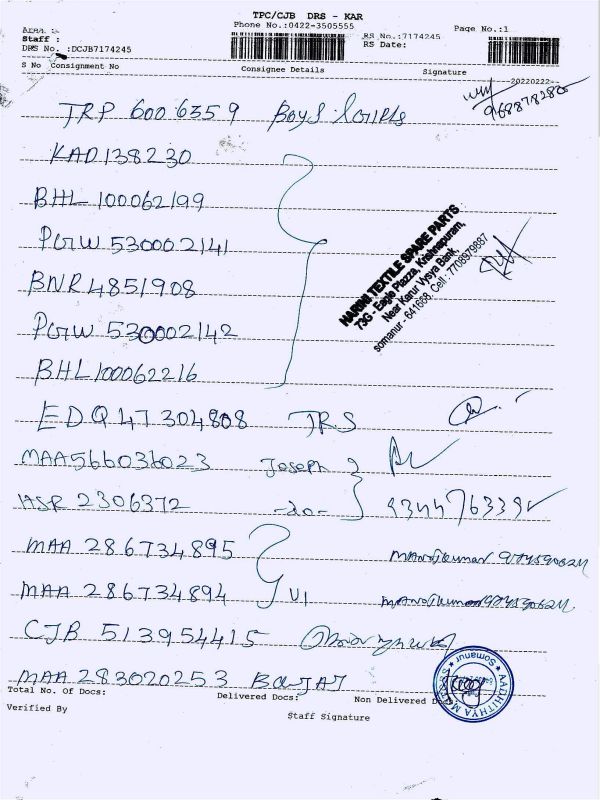 TPC/CJB DRS - KAR
Phone No.:0422-3505555
Page No.:1
Area :
Staff :
RS No.:7174245
DRS No. :DCJB7174245
RS Date:
S No Consignment No Consignee Details Signature
20220222
TRP 6006359 Boys
KAD138230
BHL 100062199
PGW 530002141
BNR 4851908
PGW 530002142
BHL100062216
HARINI TEXTILE SPARE PARTS
73G - Eagle Plazza, Krishnapuram,
Near Karur Vysya Bank,
somanur - 641668. Cell : 7708979887
EDQ 47304808 TRS
MAA566036023 Joseph
HSR 2306372 -do-
MAA 286734895
MAA 286734894 UI
CJB 513954415
MAA 283020253 BAJAJ
AADHITHYA
Somanur
Total No. Of Docs: Delivered Docs: Non Delivered Docs:
Verified By
Staff Signature